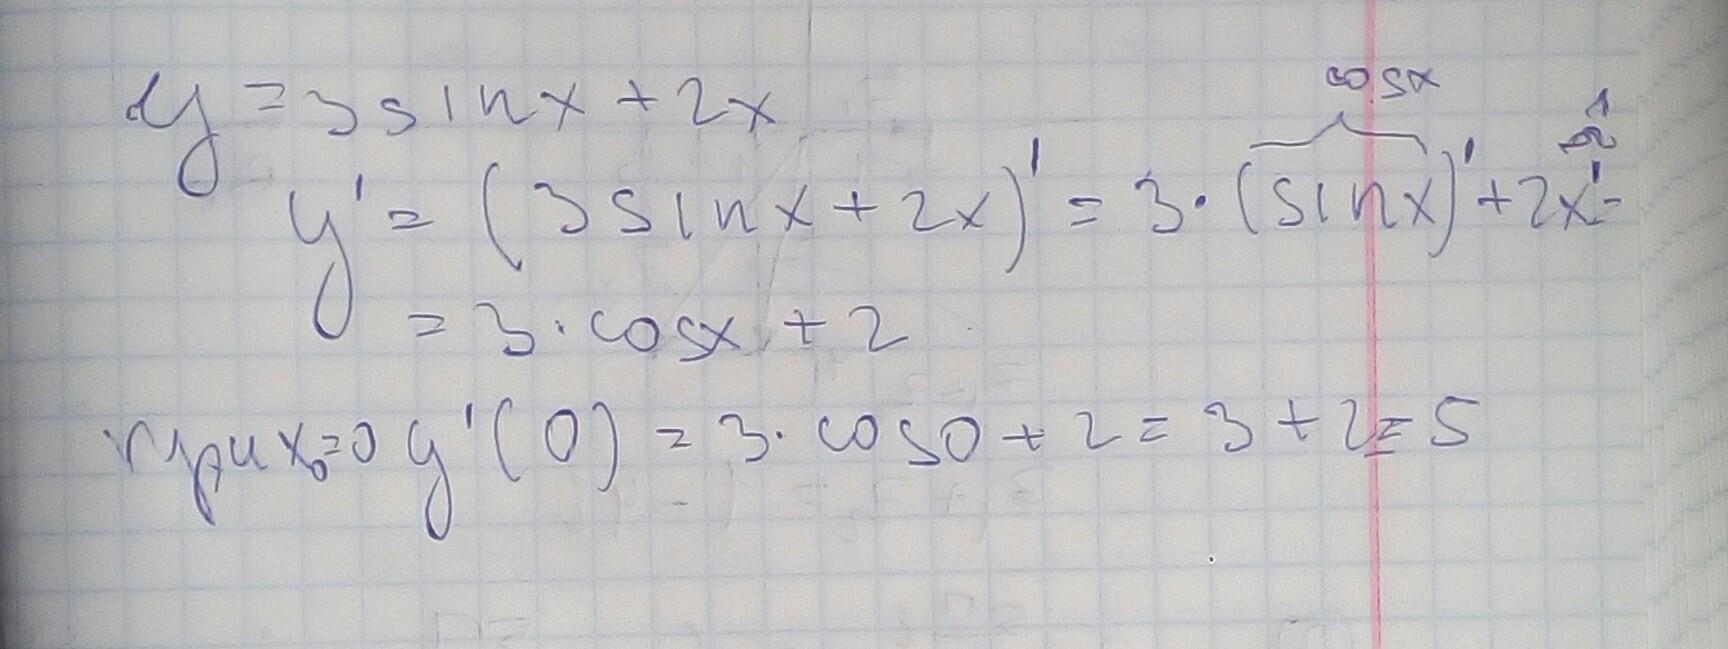 y = 3sinx + 2x
cosx 1
y' = (3sinx + 2x)' = 3·(sinx)' + 2x' =
= 3·cosx + 2
при x₀=0 y'(0) = 3·cos0 + 2 = 3 + 2 = 5